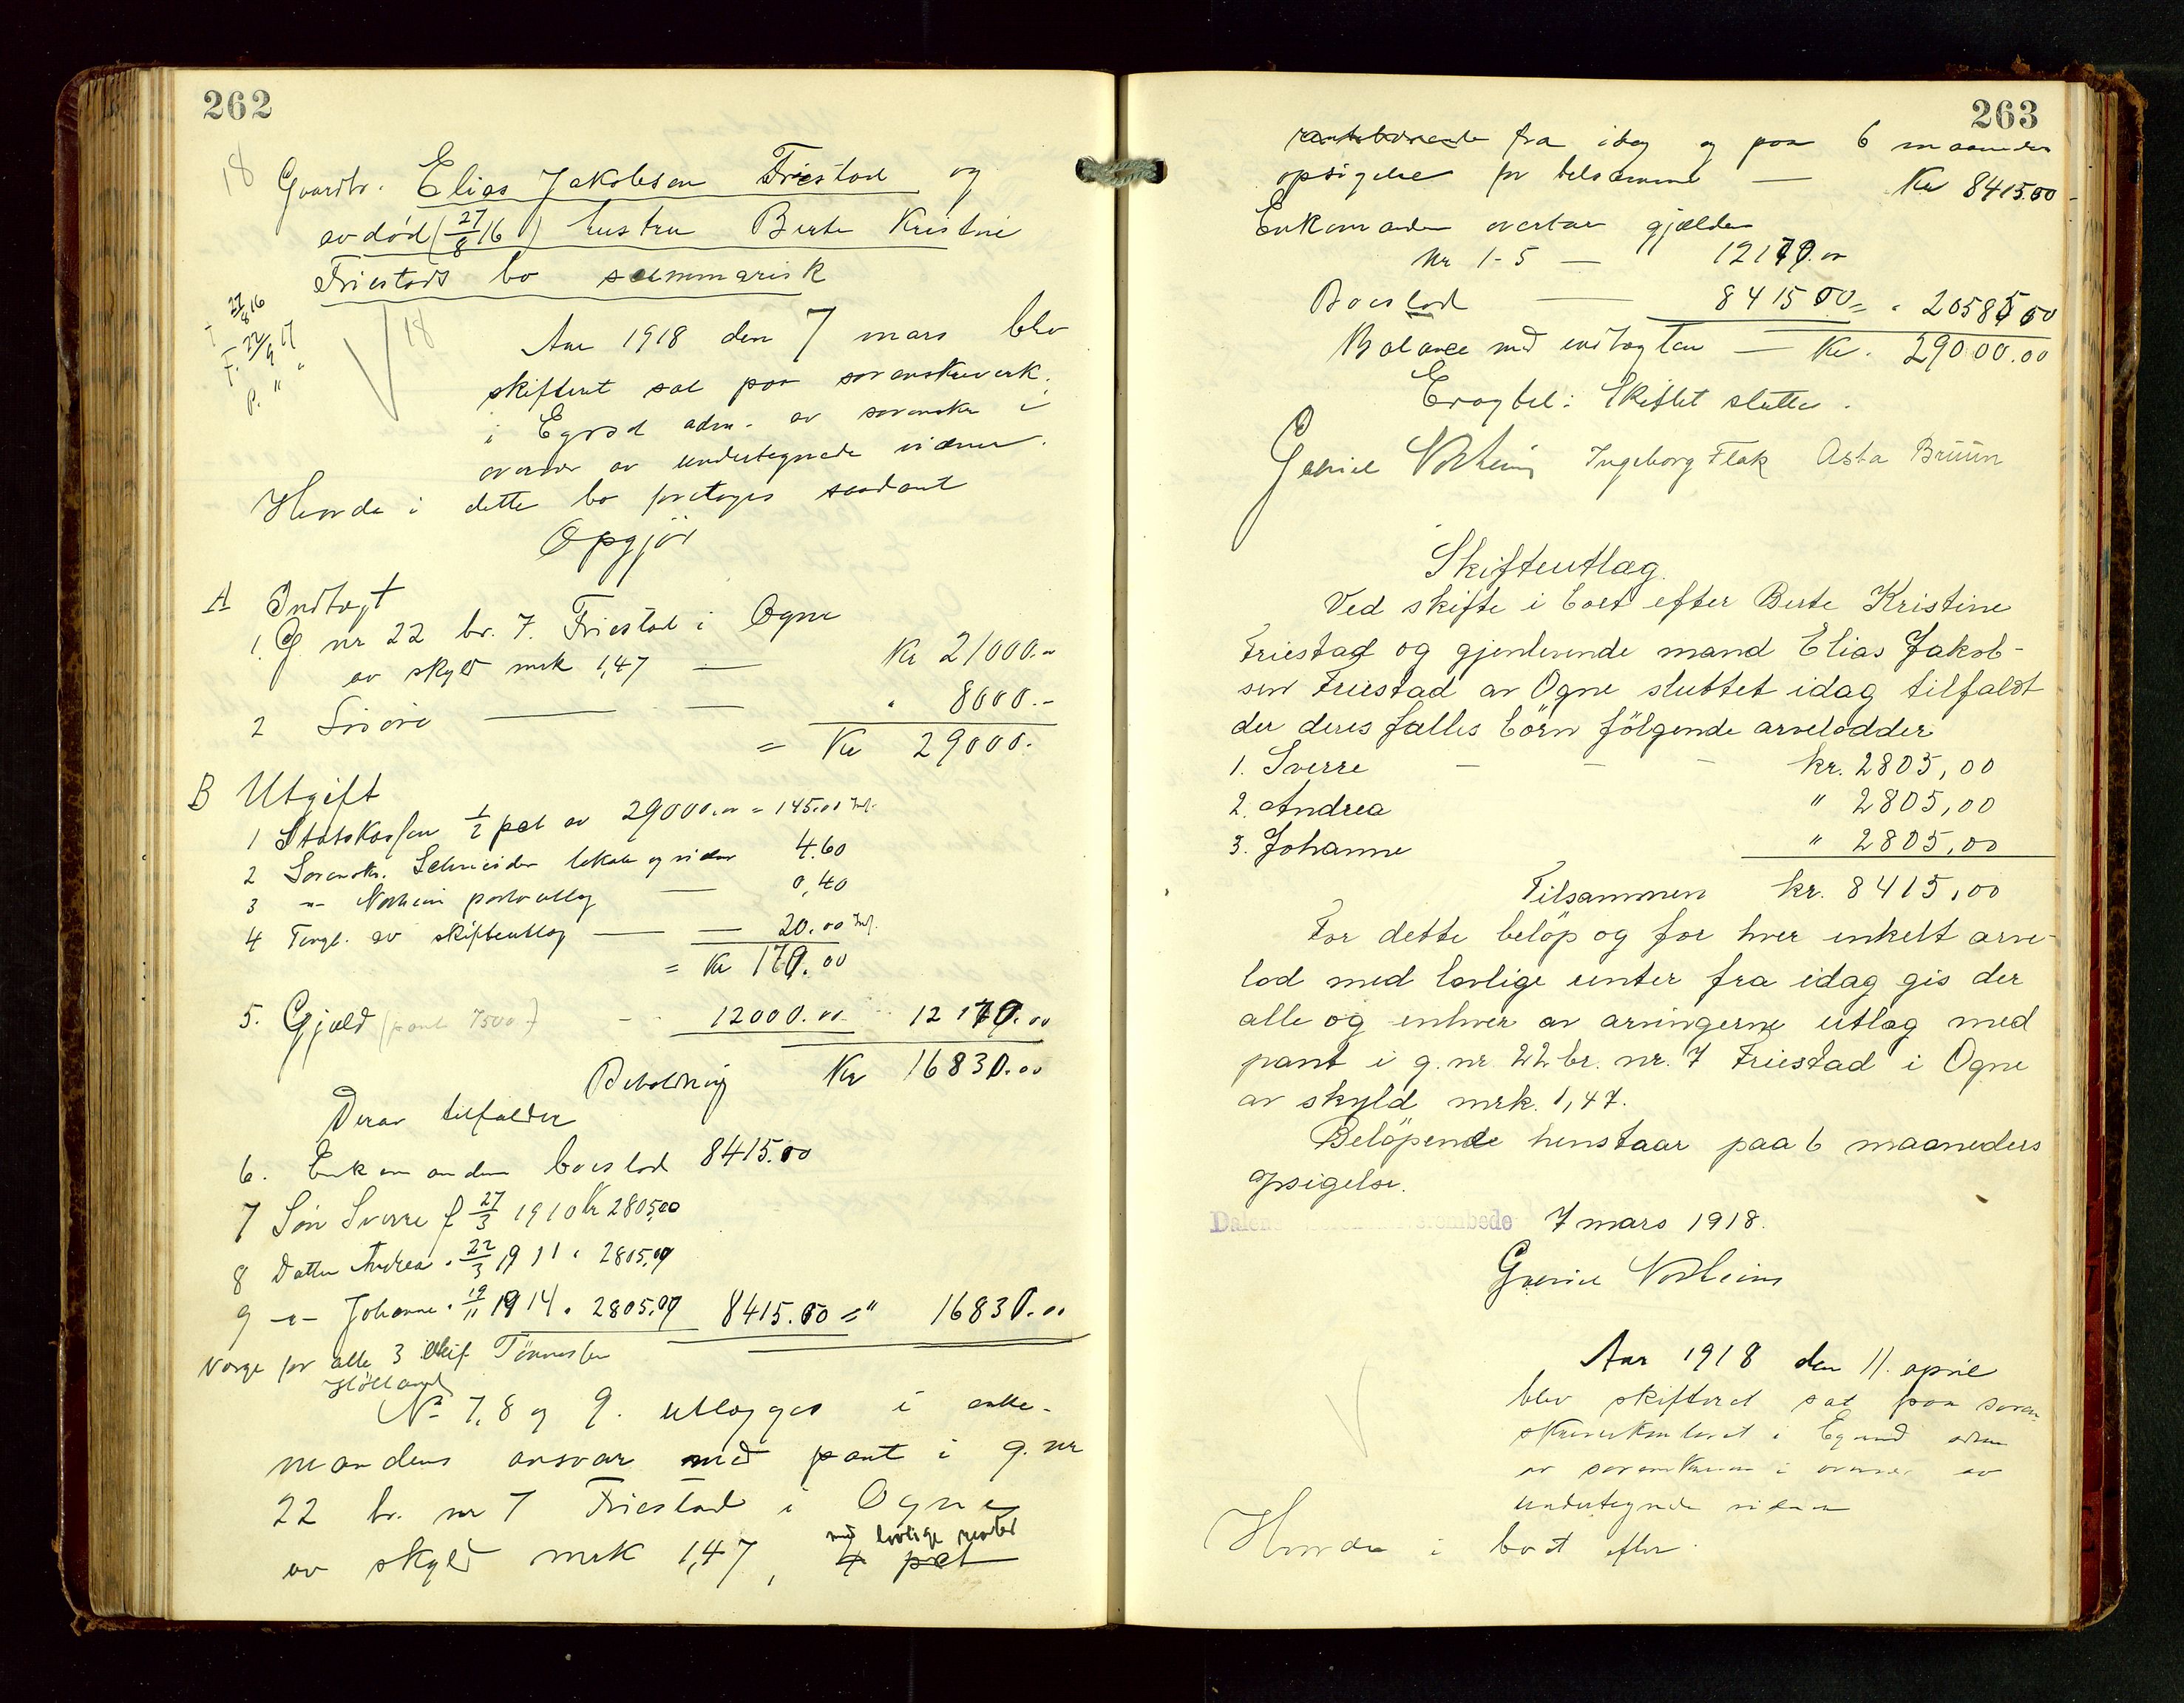 262
18 Gaardbr. Elias Jakobsen Friestad og
avdød (27/8 16) hustru Berte Kristine
Friestads bo summarisk
27/8 16
F. 22/9 17
P. " "
18
Aar 1918 den 7 mars blev
skifteret sat paa sorenskriverk.
i Egrsd adm. av sorenskr i
overvær av undertegnede vidner.
Hvorda i dette bo foretages saadant
Opgjør
A Indtægt
1. G nr 22 br. 7. Friestad i Ogne
av skyld mrk 1,47 — Kr 21000.-
2 Løsøre — — " 8000.-
= Kr 29000.-
B Utgift
1 Statskassen 1/2 pct av 29000.00 = 145.00
2 Sorenskr. Schneider lokale og vidner 4.60
3 -"- Norheim portoutlæg — 0,40
4 Tingl. av skifteutlæg — — 20.00
= Kr 170.00
5. Gjæld (pant 7500) - 12000.00 12170.00
Beholdning Kr 16830.00
Derav tilfalder
6. Enkemanden boeslod 8415.00
7 Søn Sverre f 27/3 1910 kr 2805,00
8 Datter Andrea " 22/3 1911 " 2805,00
9 -"- Johanne " 19/11 1914 " 2805.00 8415.00 = " 16830.00
Verge for alle 3 Tønnessen
Hølland
No 7, 8 og 9. utlægges i enke-
mandens ansvar med pant i g. nr
22 br. nr 7 Friestad i Ogne
med lovlige renter
av skyld mrk 1,47, 4 pct
263
rentebærende fra idag og paa 6 maaneders
opsigelse for beløpene — Kr 8415.00
Enkemanden overtar gjælden
Nr 1-5 — 12170.00
Boeslod — 8415 00 = " 20585 00
Balance med indtægten — Kr. 29000.00
Eragtet: Skiftet sluttes.
Gabriel Norheim Ingeborg Flak Asta Bruun
Skifteutlæg.
Ved skifte i boet efter Berte Kristine
Friestad og gjenlevende mand Elias Jakob-
sen Friestad av Ogne sluttet idag tilfaldt
der deres fælles börn fölgende arvelodder:
1. Sverre - - - kr. 2805,00
2. Andrea " 2805,00
3. Johanne " 2805,00
Tilsammen kr. 8415,00
For dette belöp og for hver enkelt arve-
lod med lovlige renter fra idag gis der
alle og enhver av arvingerne utlæg med
pant i g. nr 22 br. nr. 7 Friestad i Ogne
av skyld mrk. 1,47.
Belöpende henstaar paa 6 maaneders
opsigelse.
Dalene 7 mars 1918.
Gabriel Norheim
Aar 1918 den 11. april
blev skifteret sat paa soren
skriverkontoret i Egersund adm
av sorenskriveren i overvær av
undertegnede vidner
Hvorda i boet efter.